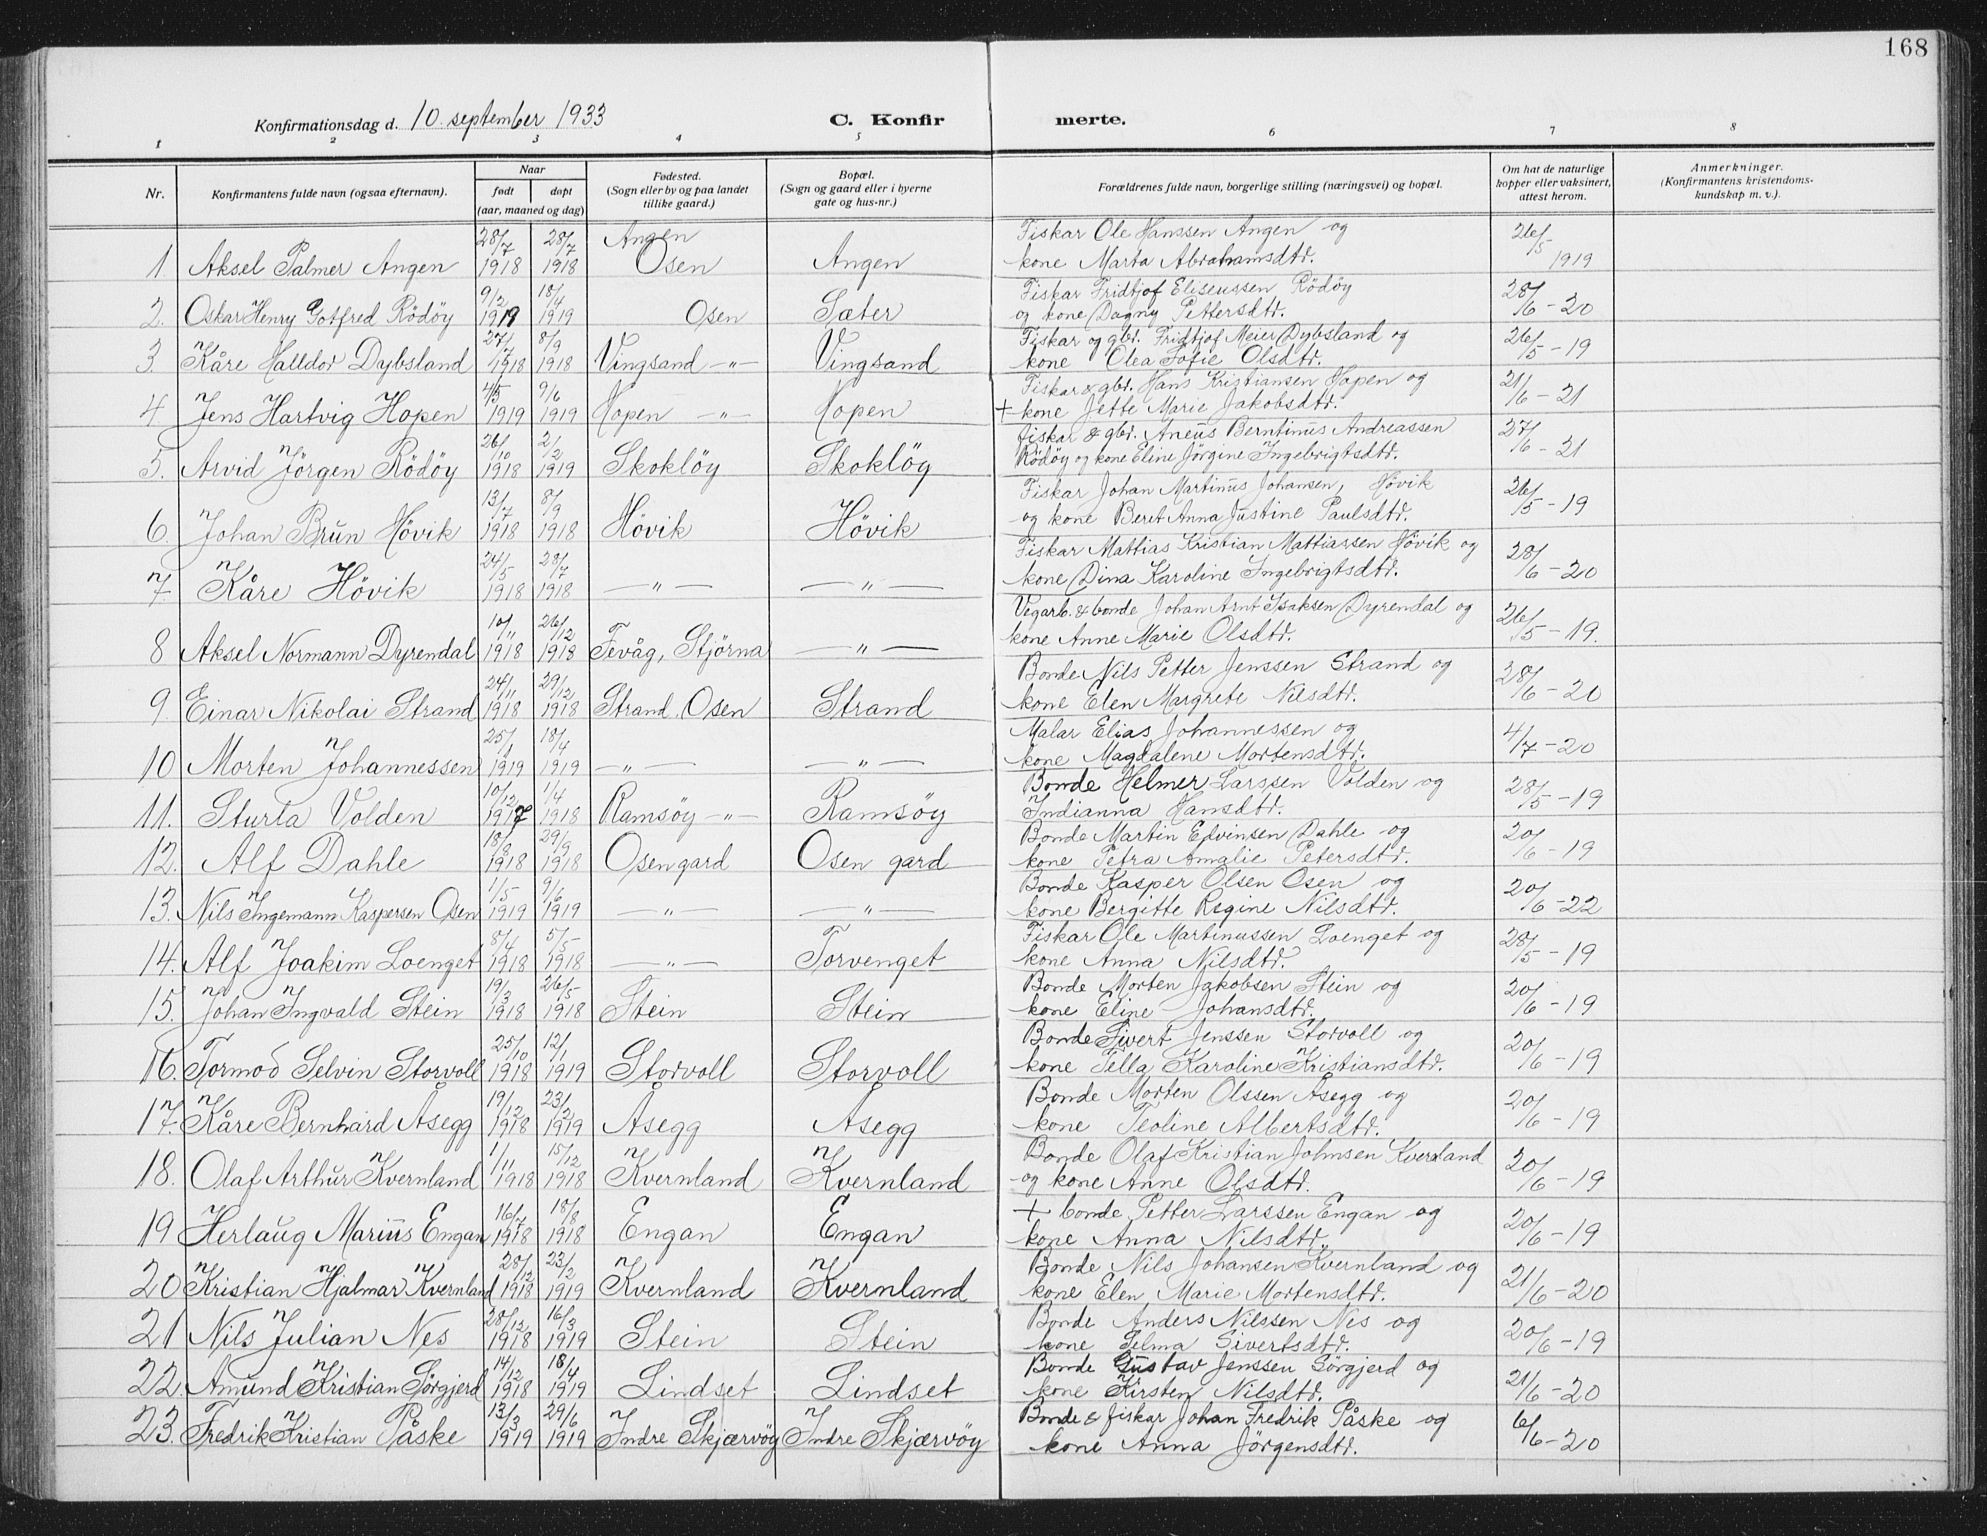 168
Konfirmationsdag d. 10. september 1933 C. Konfirmerte.
1 2 3 4 5 6 7 8
Nr. Konfirmantens fulde navn (ogsaa efternavn). Naar født døpt (aar, maaned og dag) Fødested. (Sogn eller by og paa landet tillike gaard.) Bopæl. (Sogn og gaard eller i byerne gate og hus-nr.) Forældrenes fulde navn, borgerlige stilling (næringsvei) og bopæl. Om hat de naturlige kopper eller vaksinert, attest herom. Anmerkninger. (Konfirmantens kristendomskundskap m. v.).
28/7 28/7 Angen Fiskar Ole Hanssen Angen og 26/5
1 Aksel Palmer Angen 1918 1918 Osen Angen kone Marta Abrahamsdtr. 1919
9/2 18/4 Fiskar Fridtjof Eliseussen Rödöy 28/6-20
2. Oskar Henry Gotfred Rödöy 1919 1919 Osen Sæter og kone Dagny Pettersdtr.
27/7 8/9 Fiskar og gbr. Fridtjof Meier Dybsland og 26/5-19
3. Kåre Halldor Dybsland 1918 1918 Vingsand -"- Vingsand kone Olea Sofie Olsdtr.
4/5 9/6 Fiskar & gbr. Hans Kristiansen Hopen og 21/6-21
4. Jens Hartvig Hopen 1919 1919 Hopen -"- Hopen + kone Jette Marie Jakobsdtr.
26/10 2/2 fiskar & gbr. Aneus Berntinus Andreassen 27/6-21
5. Arvid Jörgen Rödöy 1918 1919 Skoklöy Skoklöy Rödöy og kone Eline Jörgine Ingebrigtsdtr.
13/7 8/9 Fiskar Johan Martinus Johansen, Hövik 26/5-19
6. Johan Brun Hövik 1918 1918 Hövik Hövik og kone Beret Anna Justine Paulsdtr.
24/5 28/7 Fiskar Mattias Kristian Mattiassen Hövik og 28/6-20
7. Kåre Hövik 1918 1918 -"- -"- kone Dina Karoline Ingebrigtsdtr.
10/11 26/12 Vegarb. & bonde Johan Arnt Isaksen Dyrendal og 26/5-19.
8 Aksel Normann Dyrendal 1918 1918 Fevåg, Stjörna -"- kone Anne Marie Olsdtr.
24/11 29/12 Bonde Nils Petter Jenssen Strand og 28/6-20
9. Einar Nikolai Strand 1918 1918 Strand, Osen Strand kone Elen Margrete Nilsdtr.
25/1 18/4 Malar Elias Johannessen og 4/7-20
10 Morten Johannessen 1919 1919 -"- -"- kone Magdalene Mortensdtr.
10/12 1/4 Bonde Helmer Larssen Volden og 28/5-19
11. Sturla Volden 1917 1918 Ramsöy -"- Ramsöy Indianna Hansdtr.
18/8 29/9 Bonde Martin Edvinsen Dahle og 20/6-19
12. Alf Dahle 1918 1918 Osengard Osen gard kone Petra Amalie Petersdtr.
1/5 9/6 Bonde Kasper Olsen Osen og 20/6-22
13. Nils Ingemann Kaspersen Osen 1919 1919 -"- -"- kone Bergitte Regine Nilsdtr.
8/4 5/5 Fiskar Ole Martinussen Loenget og 28/5-19
14. Alf Joakim Loenget 1918 1918 -"- Torvenget kone Anna Nilsdtr.
19/3 26/5 Bonde Morten Jakobsen Stein og 20/6-19
15. Johan Ingvald Stein 1918 1918 Stein Stein kone Eline Johansdtr.
25/10 12/1 Bonde Sivert Jenssen Storvoll og 20/6-19
16. Tormod Selvin Storvoll 1918 1919 Storvoll Storvoll kone Tella Karoline Kristiansdtr.
19/12 23/2 Bonde Morten Olssen Åsegg og 20/6-19
17. Kåre Bernhard Åsegg 1918 1919 Åsegg Åsegg kone Teoline Albertsdtr.
1/11 15/12 Bonde Olaf Kristian Johnsen Kvernland 20/6-19
18. Olaf Arthur Kvernland 1918 1918 Kvernland Kvernland og kone Anne Olsdtr.
16/7 18/8 + bonde Petter Larssen Engan og 20/6-19
19 Herlaug Marius Engan 1918 1918 Engan Engan kone Anna Nilsdtr.
20/12 23/2 Bonde Nils Johansen Kvernland og 21/6-20
20 Kristian Hjalmar Kvernland 1918 1919 Kvernland Kvernland kone Elen Marie Mortensdtr.
28/12 16/3 Bonde Anders Nilssen Nes og 20/6-19
21 Nils Julian Nes 1918 1919 Stein Stein kone Selma Sivertsdtr.
14/12 18/4 Bonde Gustav Jenssen Sörgjerd og 21/6-20
22. Amund Kristian Sörgjerd 1918 1919 Lindset Lindset kone Kirsten Nilsdtr.
13/3 29/6 Bonde & fiskar Johan Fredrik Påske og 6/6-20
23. Fredrik Kristian Påske 1919 1919 Indre Skjærvöy Indre Skjærvöy kone Anna Jörgensdtr.